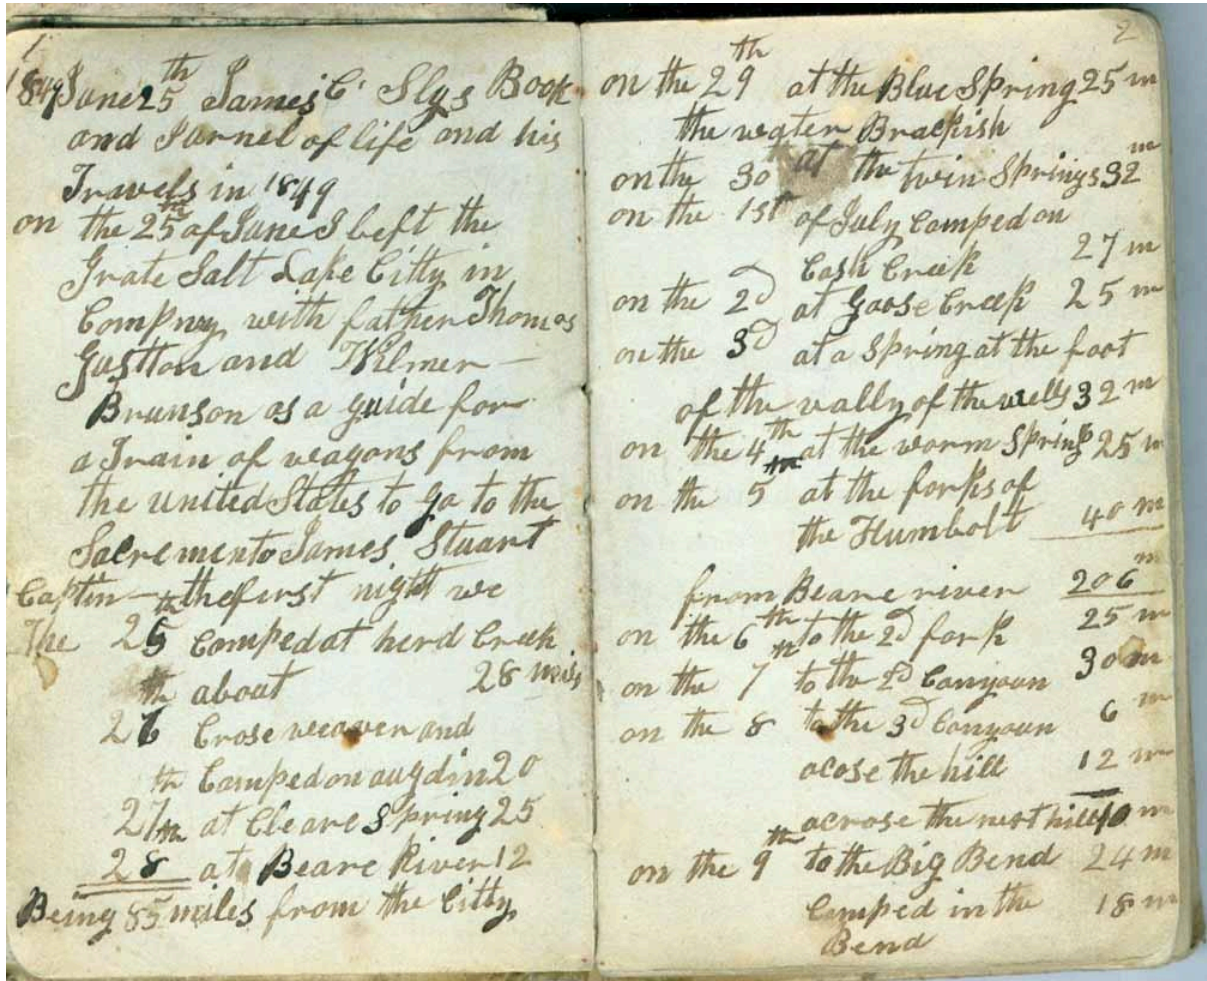 1
1849 June 25th James C. Slys Book
and Jurnel of life and his
Travels in 1849
on the 25th of June I left the
Grate Salt Lake Citty in
Compney with father Thomas
and Wilmer
Brunson as a guide for
a Train of wagons from
the united States to go to the
Sacremento James Stuart
Captin — the first night we
The 25th Camped at herd Creek
about 28 miles
26th Crose weaver and
Camped on augdin 20
27th at Cleare Spring 25
28th at Beare River 12
Being 85 miles from the Citty
2
on the 29th at the Blue Spring 25 m
the water Brackish
on the 30 at the twin Springs 32 m
on the 1st of July Camped on
Cash Creek 27 m
on the 2d at Goose Creek 25 m
on the 3d at a Spring at the foot
of the vally of the wells 32 m
on the 4th at the worm Spring 25 m
on the 5th at the forks of
the Humbolt 40 m
from Beare river 206 m
on the 6th to the 2d fork 25 m
on the 7th to the 2d Canyoun 30 m
on the 8 to the 3d Canyoun 6 m
acose the hill 12 m
acrose the next hill 10 m
on the 9th to the Big Bend 24 m
Camped in the 18 m
Bend